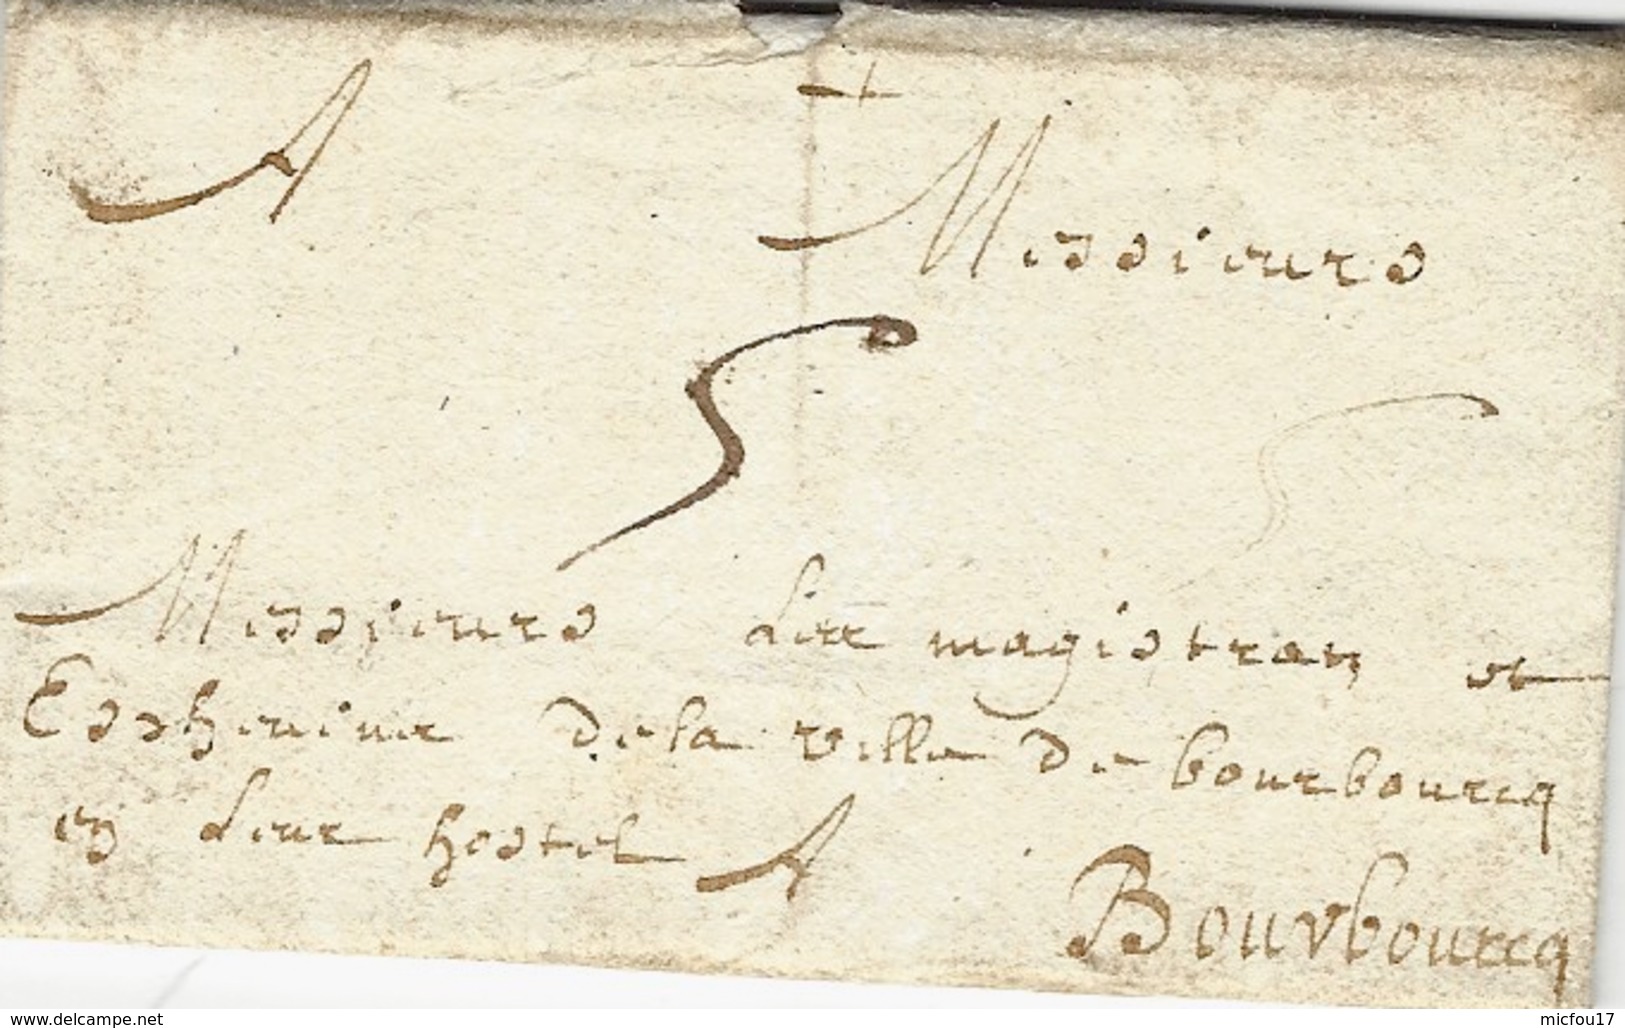 A Messieurs
5
Messieurs Les magistran et
Eschevins de la ville de bourbourcq
en Leur hostel A Bourbourcq
www.delcampe.net
micfou17